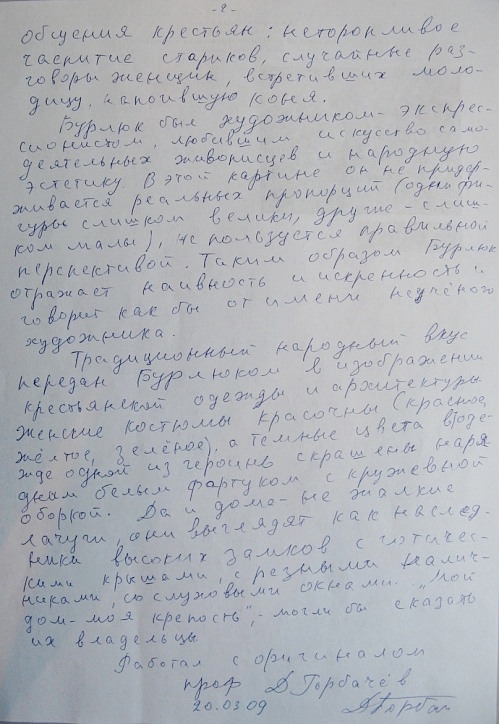 - 2 -
общения крестьян: неторопливое
чаепитие стариков, случайные раз-
говоры женщин, встретивших моло-
дицу, напоившую коня.
Бурлюк был художником-экспрес-
сионистом, любившим искусство само-
деятельных живописцев и народную
эстетику. В этой картине он не придер-
живается реальных пропорций (одни фи-
гуры слишком велики, другие - слиш-
ком малы), не пользуется правильной
перспективой. Таким образом Бурлюк
отражает наивность и искренность и
говорит как бы от имени неучёного
художника.
Традиционный народный вкус
передан Бурлюком в изображении
крестьянской одежды и архитектуры.
Женские костюмы красочны (красное,
жёлтое, зелёное), а темные цвета в оде-
жде одной из героинь скрашены наря
дным белым фартуком с кружевной
оборкой. Да и дома - не жалкие
лачуги, они выглядят как наслед-
ники высоких замков с готичес-
кими крышами, с резными налич-
никами, со слуховыми окнами. "Мой
дом - моя крепость", - могли бы сказать
их владельцы.
Работал с оригиналом
проф Д Горбачёв
20.03.09 ДГорбач